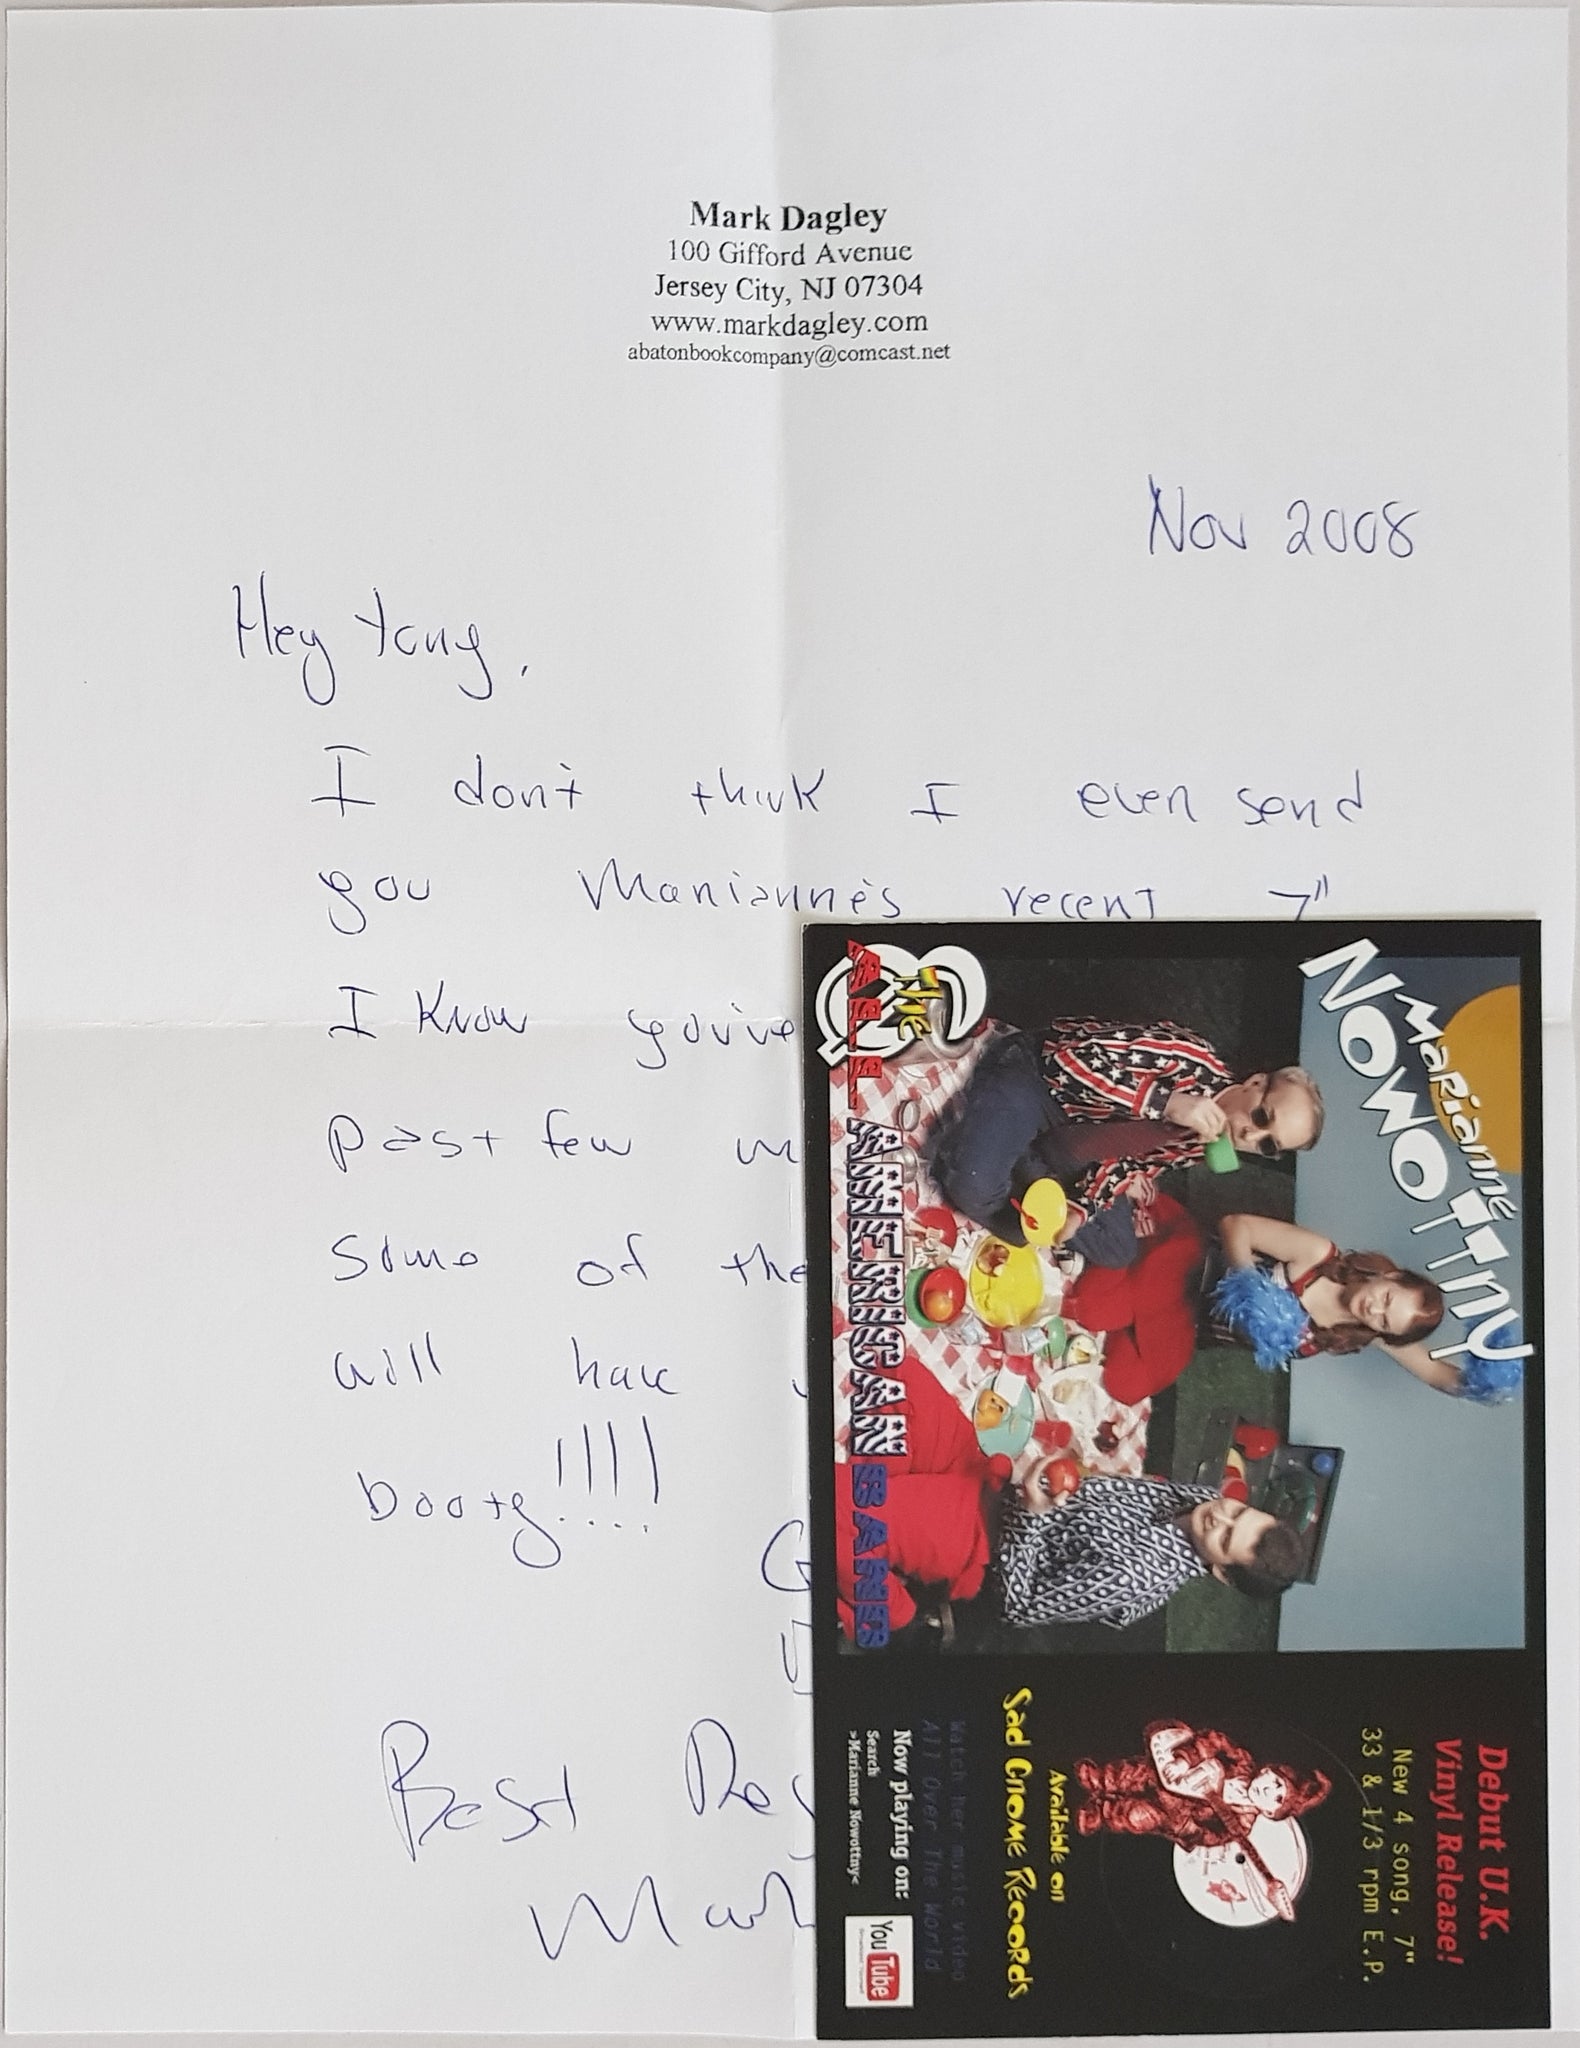 Mark Dagley
100 Gifford Avenue
Jersey City, NJ 07304
www.markdagley.com
abatonbookcompany@comcast.net
Nov 2008
Hey Yong,
I don't think I even send
you Marianne's recent 7"
I know you've
past few
some of the
will have
booty!!!!
Best
Mark
Marianne
NOWOTTNY
The
ALL AMERICAN BAND
Debut U.K.
Vinyl Release!
New 4 song, 7"
33 & 1/3 rpm E.P.
Available on
Sad Gnome Records
Watch her music video
All Over The World
Now playing on:
Search:
>Marianne Nowottny<
YouTube